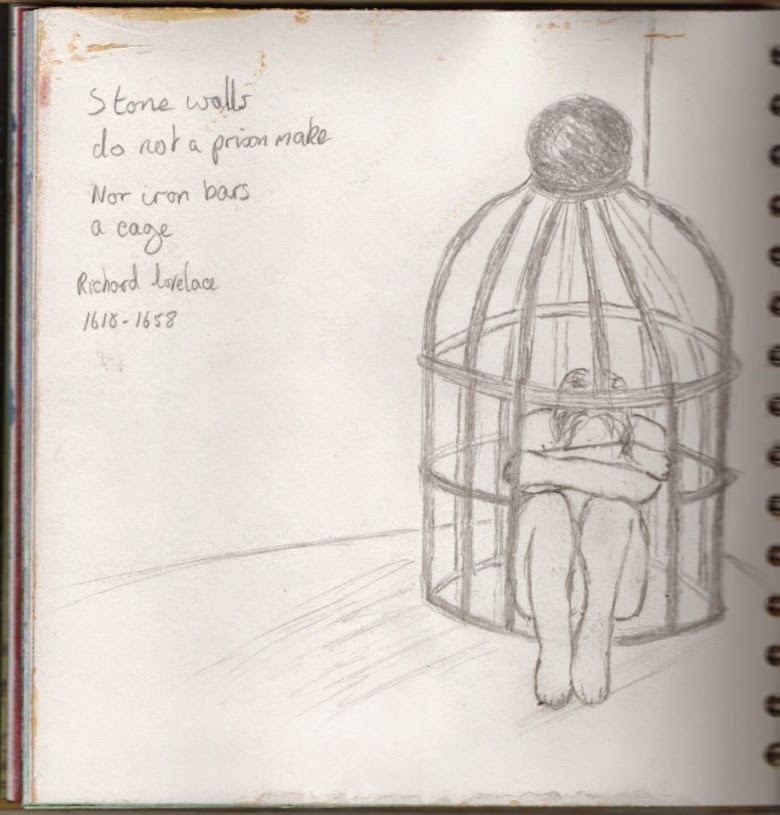 Stone walls
do not a prison make
Nor iron bars
a cage
Richard Lovelace
1618-1658